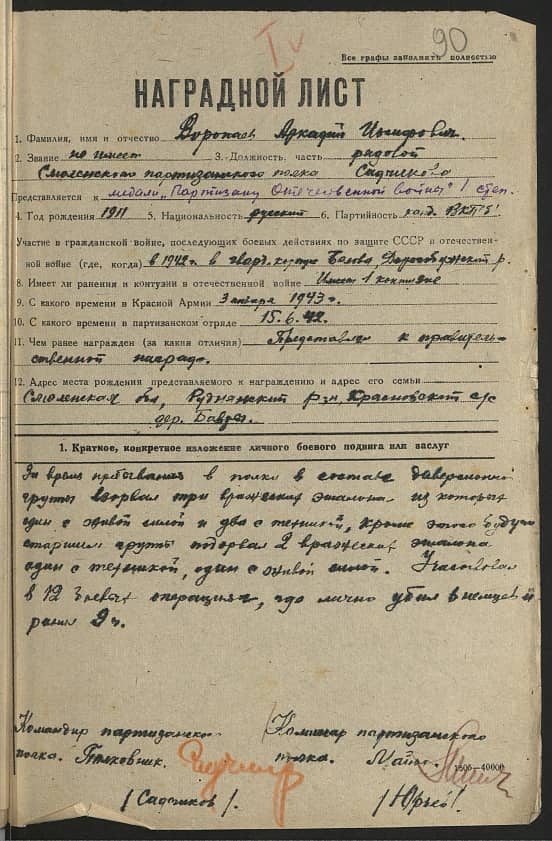 90
Все графы заполнять полностью
НАГРАДНОЙ ЛИСТ
1. Фамилия, имя и отчество Воропаев Аркадий
2. Звание не имеет 3. Должность, часть рядовой
Смоленского партизанского полка Садчикова
Представляется к медали „Партизану Отечественной войны" I степ.
4. Год рождения 1911 5. Национальность русский 6. Партийность канд. ВКП(б)
Участие в гражданской войне, последующих боевых действиях по защите СССР и отечествен-
ной войне (где, когда) в 1942 г в гвар. корпус Белова, Дорогобужский р.
8. Имеет ли ранения и контузии в отечественной войне Имеет 1 контузию
9. С какого времени в Красной Армии 3 января 1943 г.
10. С какого времени в партизанском отряде 15.6.42.
11. Чем ранее награжден (за какия отличия) Представлен к правитель-
ственной награде.
12. Адрес места рождения представляемого к награждению и адрес его семьи
Смоленская обл, Руднянский р-н, Красновский с/с
дер.
1. Краткое, конкретное изложение личного боевого подвига или заслуг
За время пребывания в полку в составе диверсионной
группы взорвал три вражеских эшалона из которых
один с живой силой и два с техникой, кроме этого будучи
старшим группы подорвал 2 вражеских эшалона
один с техникой, один с живой силой. Участвовал
в 12 боевых операциях, где лично убил немцев и
ранил 2 ч.
Командир партизанского
полка. Полковник.
/Садчиков/.
Комиссар партизанского
полка. Майор
/Юрьев/.
1606—40000